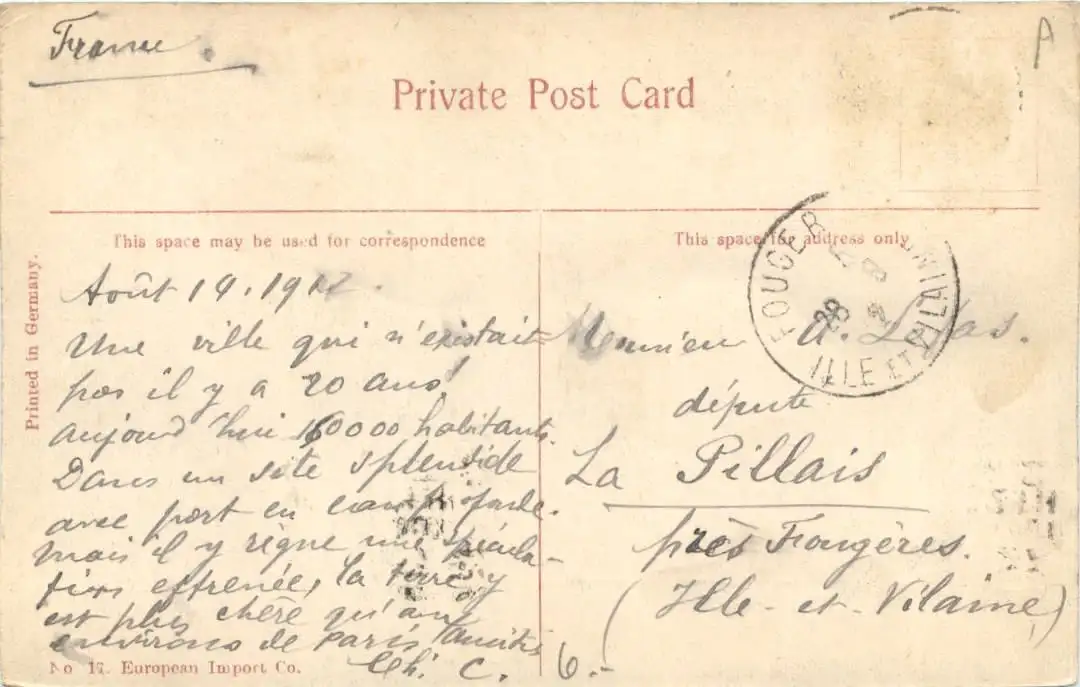 France.
A
Private Post Card
This space may be used for correspondence
This space for address only
Printed in Germany.
FOUGERES
28 8
ILLE ET VILAINE
Août 19. 1912.
Une ville qui n'existait
pas il y a 20 ans!
aujourd'hui 160000 habitants.
Dans un site splendide
avec port en eau profonde.
mais il y règne une spécula-
tion effrenée, la terre y
est plus chère qu'aux
environs de Paris Amitiés
Ch. C.
Monsieur A.
député
La Pillais
près Fougères.
(Ille-et-Vilaine)
No 17. European Import Co.
6.-